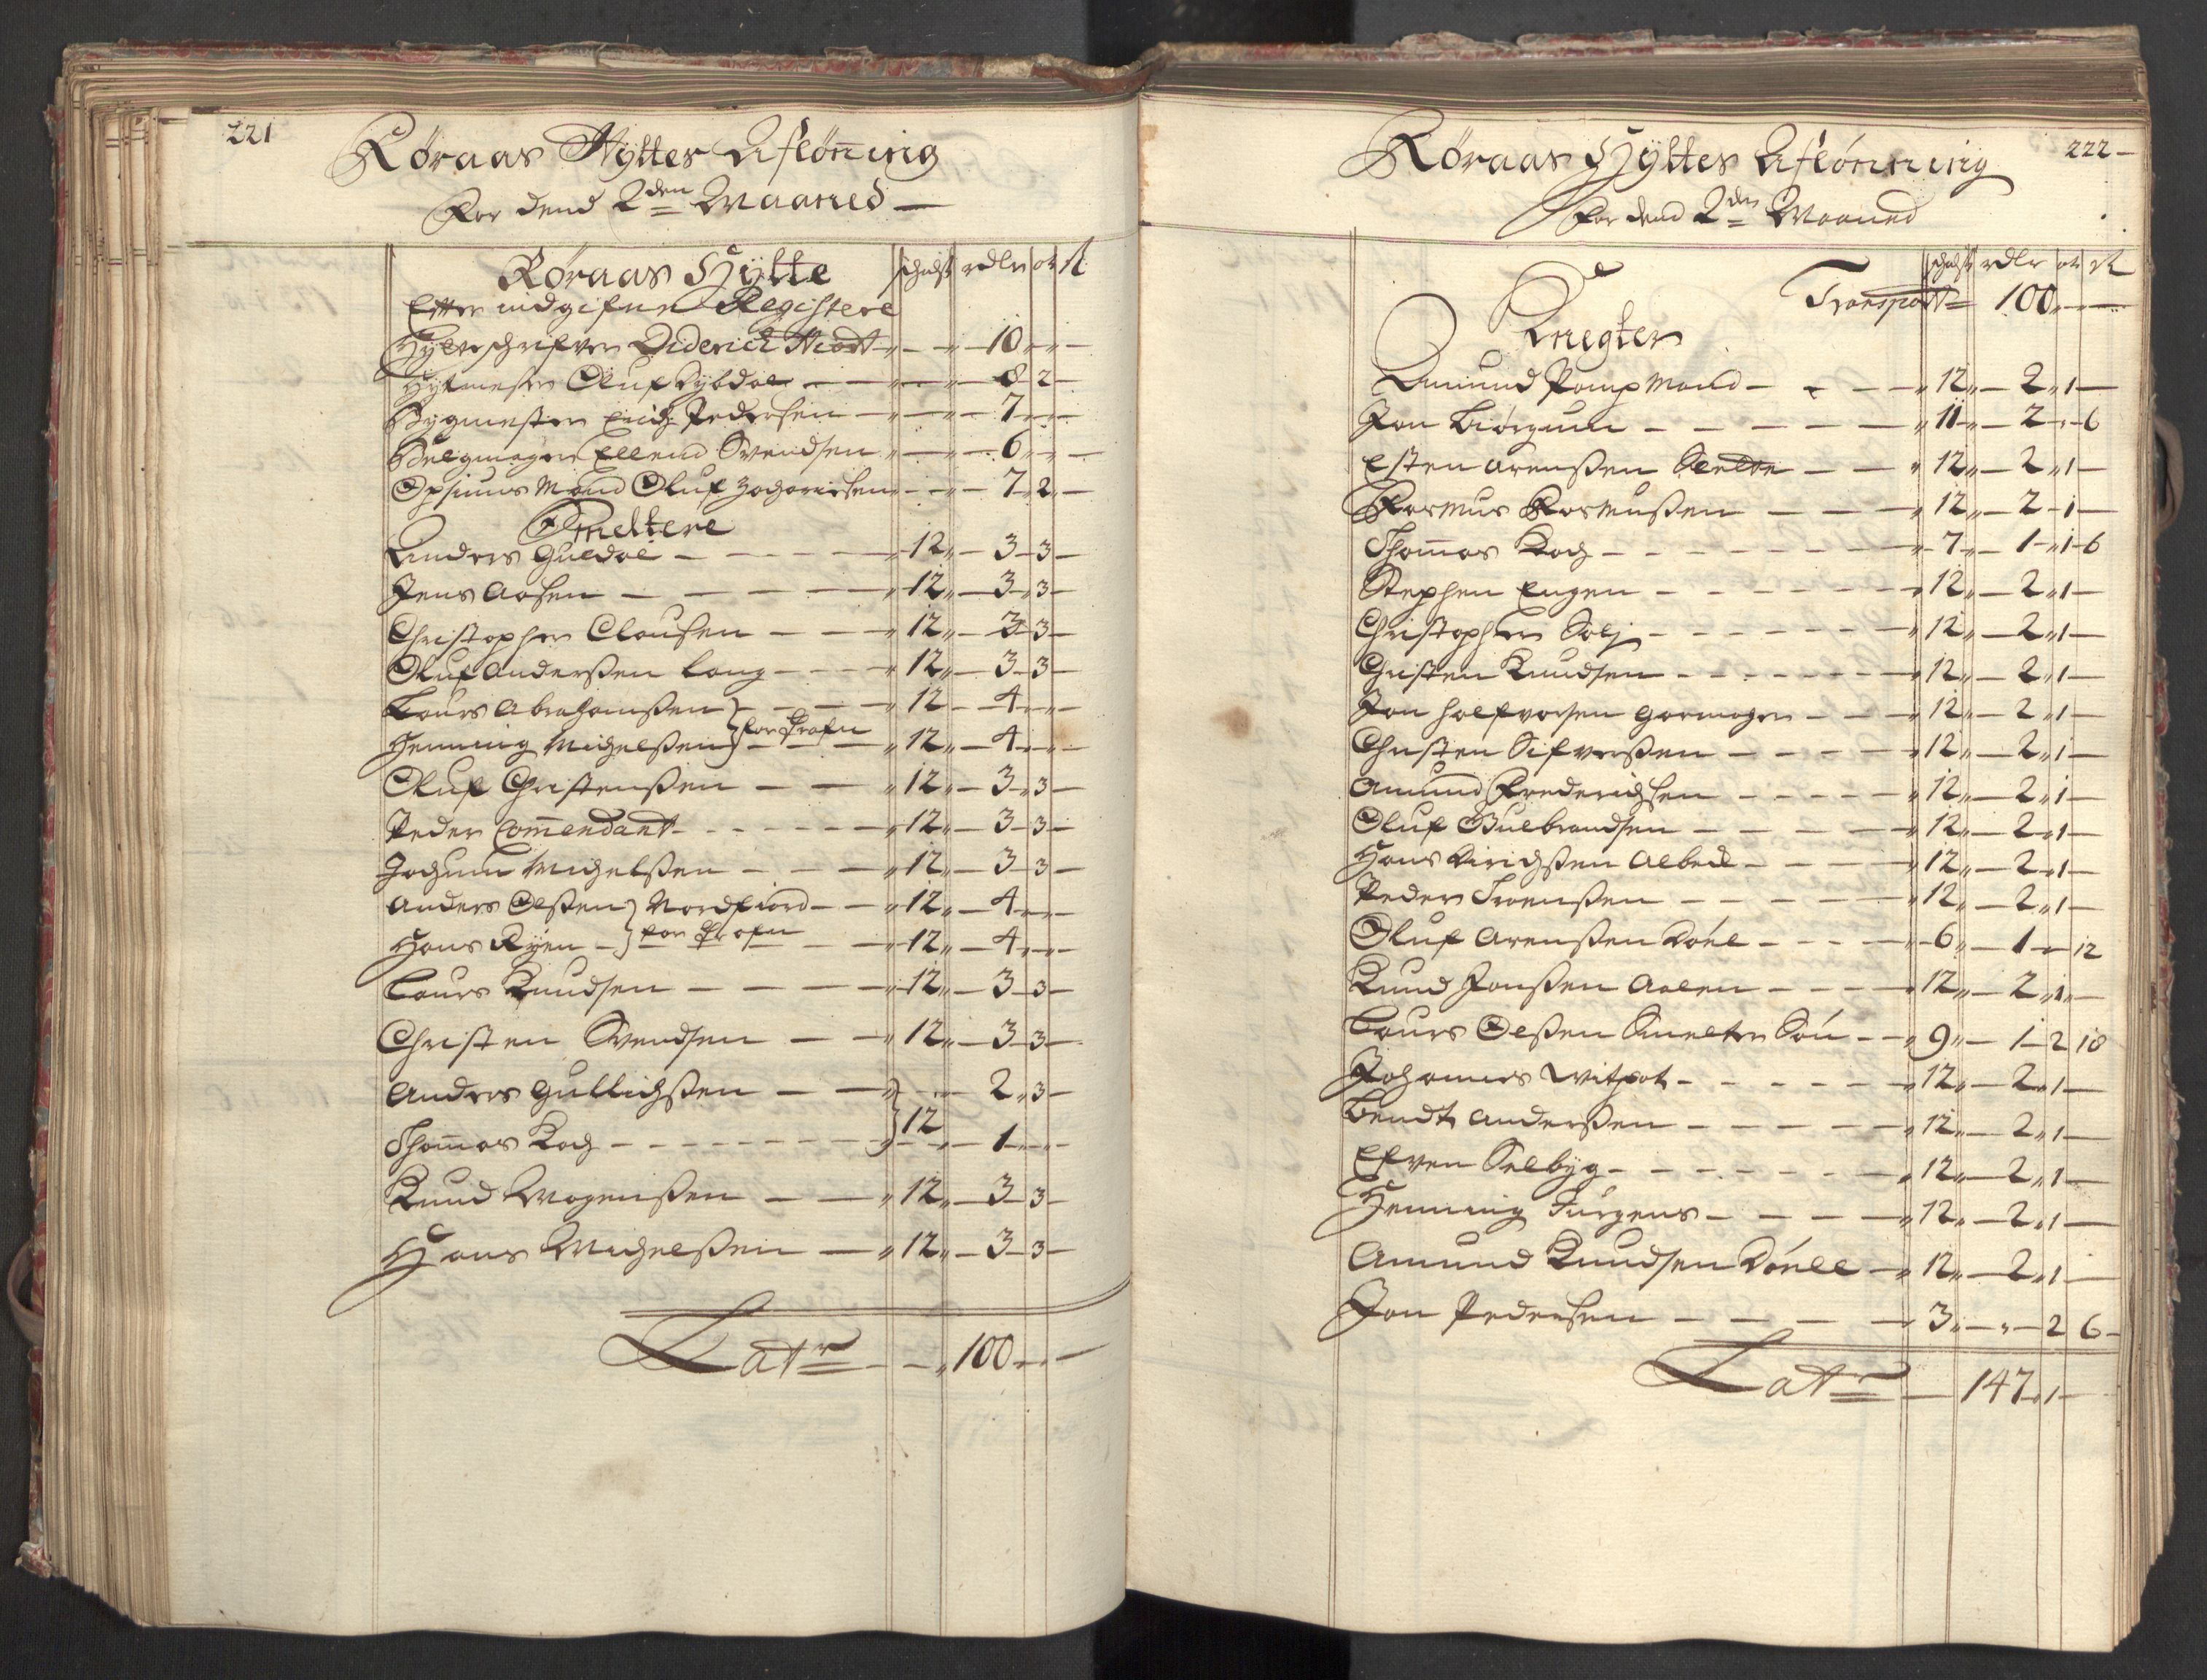 221
Røraas Hyttes Aflønning
For dend 2den Maaned
Røraas Hytte schicht rdlr ort s
Efter indgifne Registere
Hytteschrifver Diderich Hiort 10
Hytmester Oluf Dybdal 8 2
Bygmester Erich Pedersen 7
Belgmager Ellend Svendsen 6
Opsiuns Mand Oluf Zachariesen 7 2
Smeltere
Anders Guldal 12 3 3
Jens Aasen 12 3 3
Christopher Clausen 12 3 3
Oluf Anderßen Lang 12 3 3
Laurs Abrahamßen 12 4
Henning Michelßen } for Prøfn 12 4
Oluf Christenßen 12 3 3
Peder Commendant 12 3 3
Jochum Michelßen 12 3 3
Anders Olßen Nordfiord 12 4
Hans Ryen } for Prøfn 12 4
Laurs Knudsen 12 3 3
Christen Svendsen 12 3 3
Anders Gullichßen 2 3
Thommas Koch } 12 1
Knud Mogenßen 12 3 3
Hans Michelßen 12 3 3
Latr 100
222
Røraas Hyttes Aflønning
For dend 2den Maaned
schicht rdlr ort s
Transport 100
Knegter
Amund Pompmand 12 2 1
Jon Biørgum 11 2 6
Esten Arenßen 12 2 1
Rasmus Rasmußen 12 2 1
Thommas Koch 7 1 1 6
Stephen Engen 12 2 1
Christopher Solj 12 2 1
Christen Knudsen 12 2 1
Jon Halfvorsen Garmager 12 2 1
Christen Sifverßen 12 2 1
Amund Frederichsen 12 2 1
Oluf Gulbrandsen 12 2 1
Hans Dirichßen Albech 12 2 1
Peder Svenßen 12 2 1
Oluf Arenßen Døel 6 1 12
Knud Jonßen Aalen 12 2 1
Laurs Olßen Smelter Søn 9 1 2 18
Johannes Witfot 12 2 1
Bendt Anderßen 12 2 1
Efven Selbyg 12 2 1
Henning Jürgens 12 2 1
Amund Knudsen Døell 12 2 1
Jon Pedersen 3 2 6
Latr 147 1